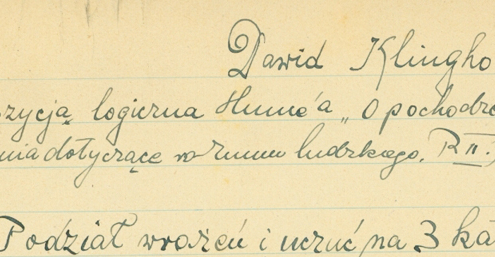 Dawid Klingho
ozycja logiczna Hume'a „O pochodze
nia dotyczące rozumu ludzkiego. R II.
Podział wrażeń i uczuć na 3 ka